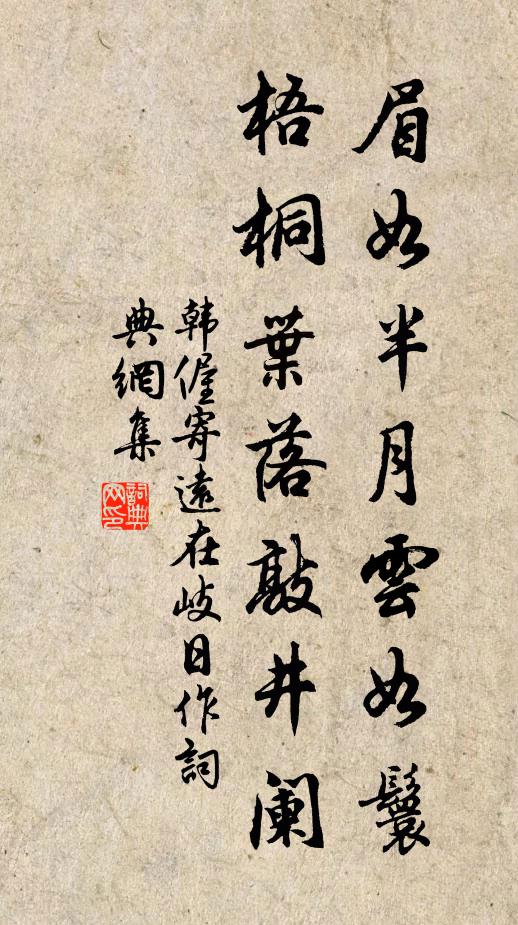 眉如半月雲如鬟
梧桐葉落敲井阑
韩偓寄遠在岐日作詞
典網集
詞典
网印